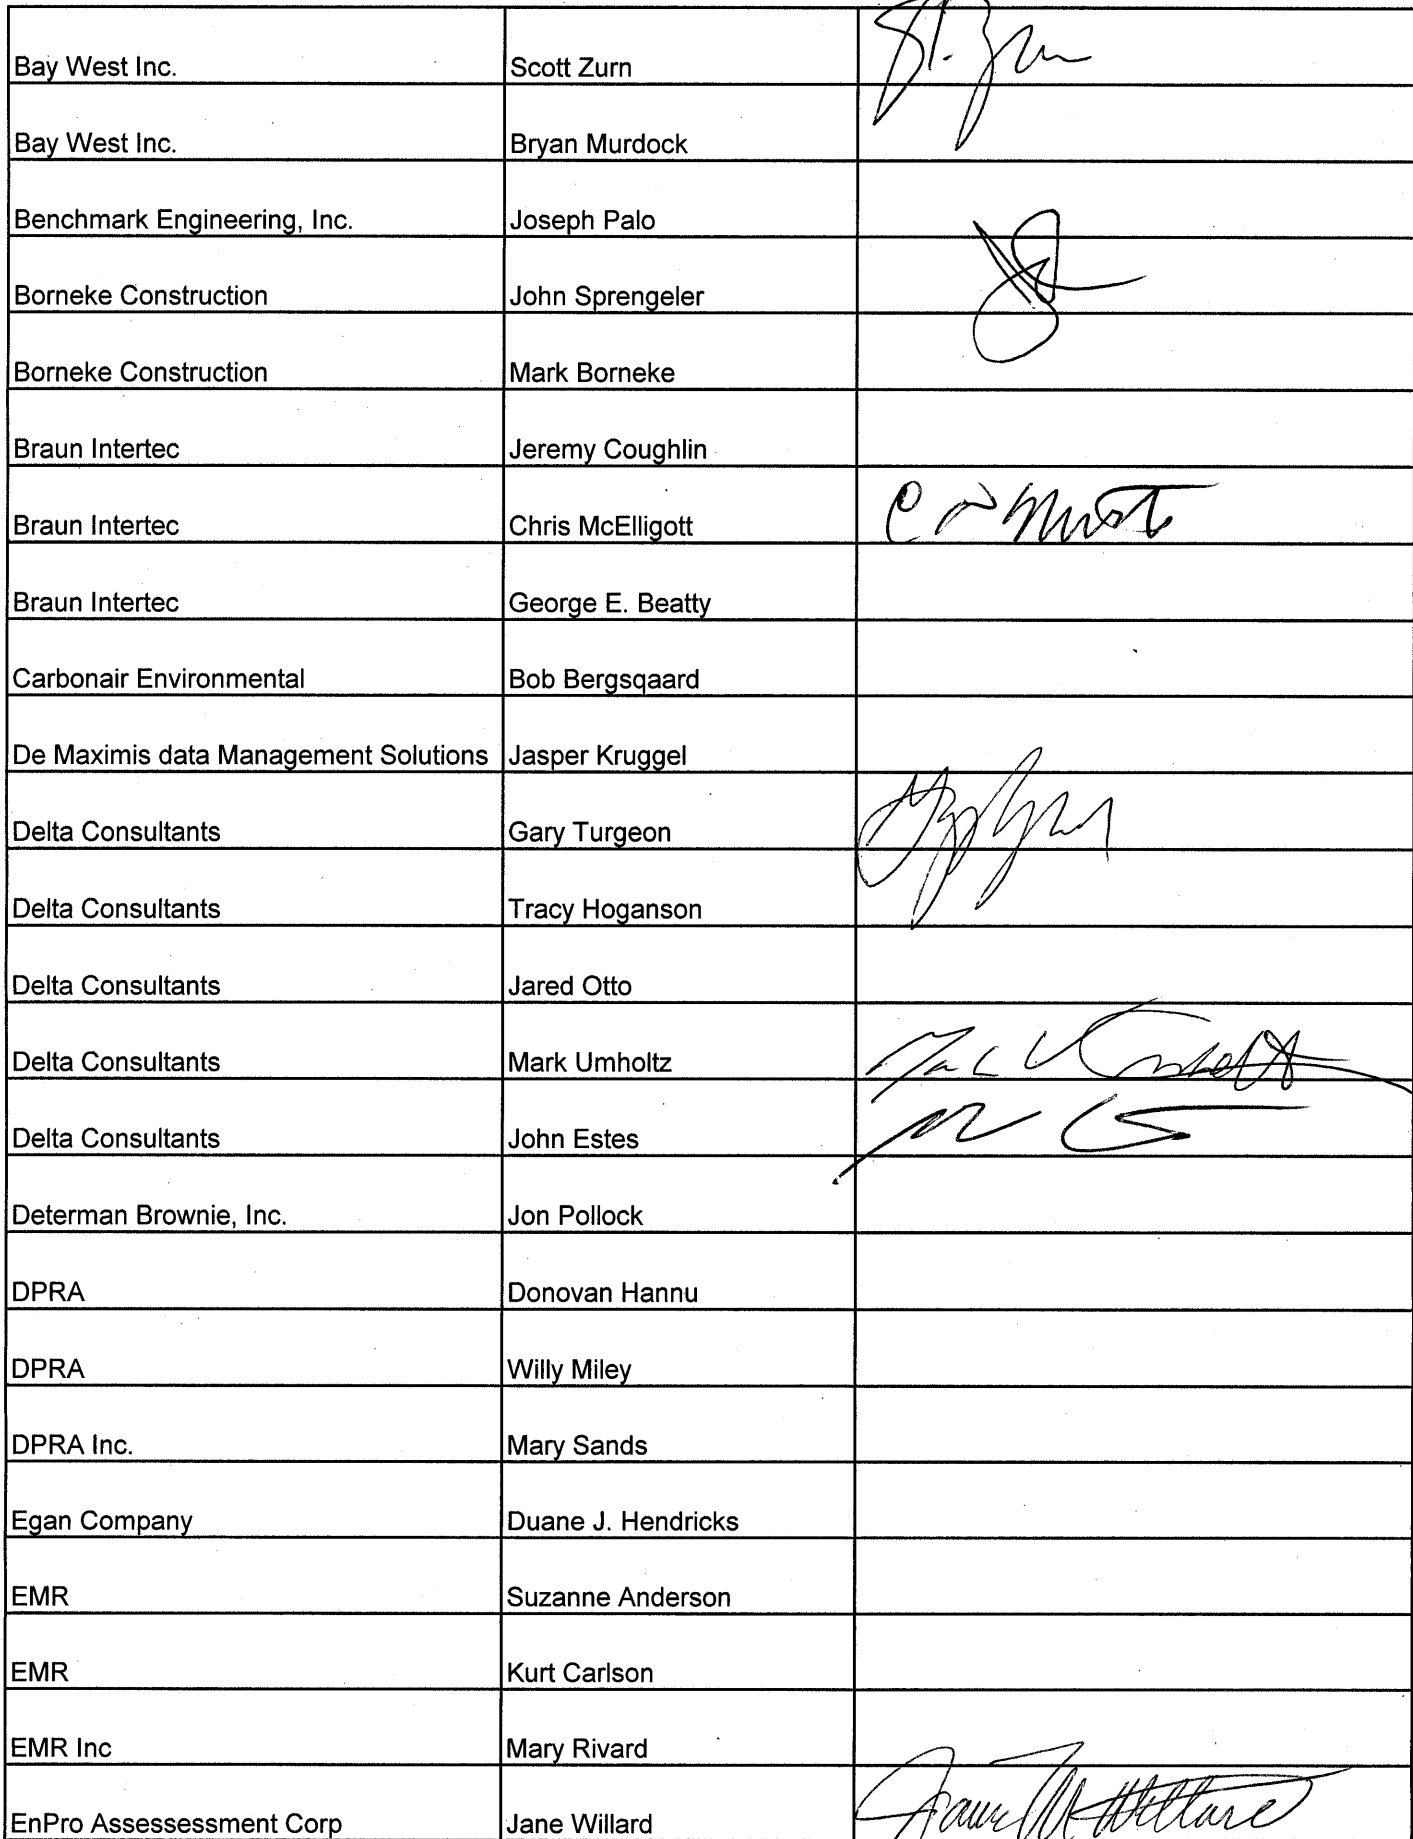 Bay West Inc. Scott Zurn
Bay West Inc. Bryan Murdock
Benchmark Engineering, Inc. Joseph Palo
Borneke Construction John Sprengeler
Borneke Construction Mark Borneke
Braun Intertec Jeremy Coughlin
Braun Intertec Chris McElligott
Braun Intertec George E. Beatty
Carbonair Environmental Bob Bergsqaard
De Maximis data Management Solutions Jasper Kruggel
Delta Consultants Gary Turgeon
Delta Consultants Tracy Hoganson
Delta Consultants Jared Otto
Delta Consultants Mark Umholtz
Delta Consultants John Estes
Determan Brownie, Inc. Jon Pollock
DPRA Donovan Hannu
DPRA Willy Miley
DPRA Inc. Mary Sands
Egan Company Duane J. Hendricks
EMR Suzanne Anderson
EMR Kurt Carlson
EMR Inc Mary Rivard
EnPro Assessessment Corp Jane Willard